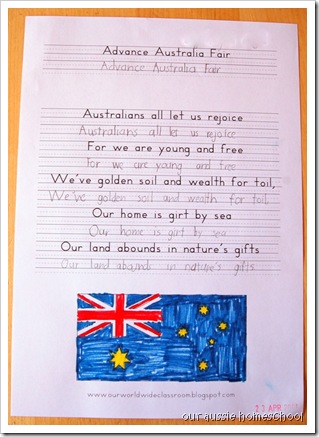 Advance Australia Fair
Advance Australia Fair
Australians all let us rejoice
Australians all let us rejoice
For we are young and free
For we are young and free
We've golden soil and wealth for toil,
We've golden soil and wealth for toil.
Our home is girt by sea
Our home is girt by sea
Our land abounds in nature's gifts
Our land abounds in nature's gifts
www.ourworldwideclassroom.blogspot.com
23 APR
our aussie homeschool